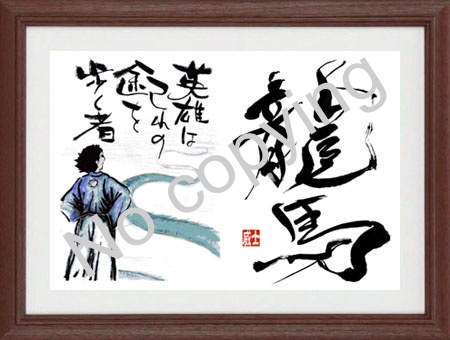 英雄は
己れの
途を
歩く者
龍馬
威士
No copying